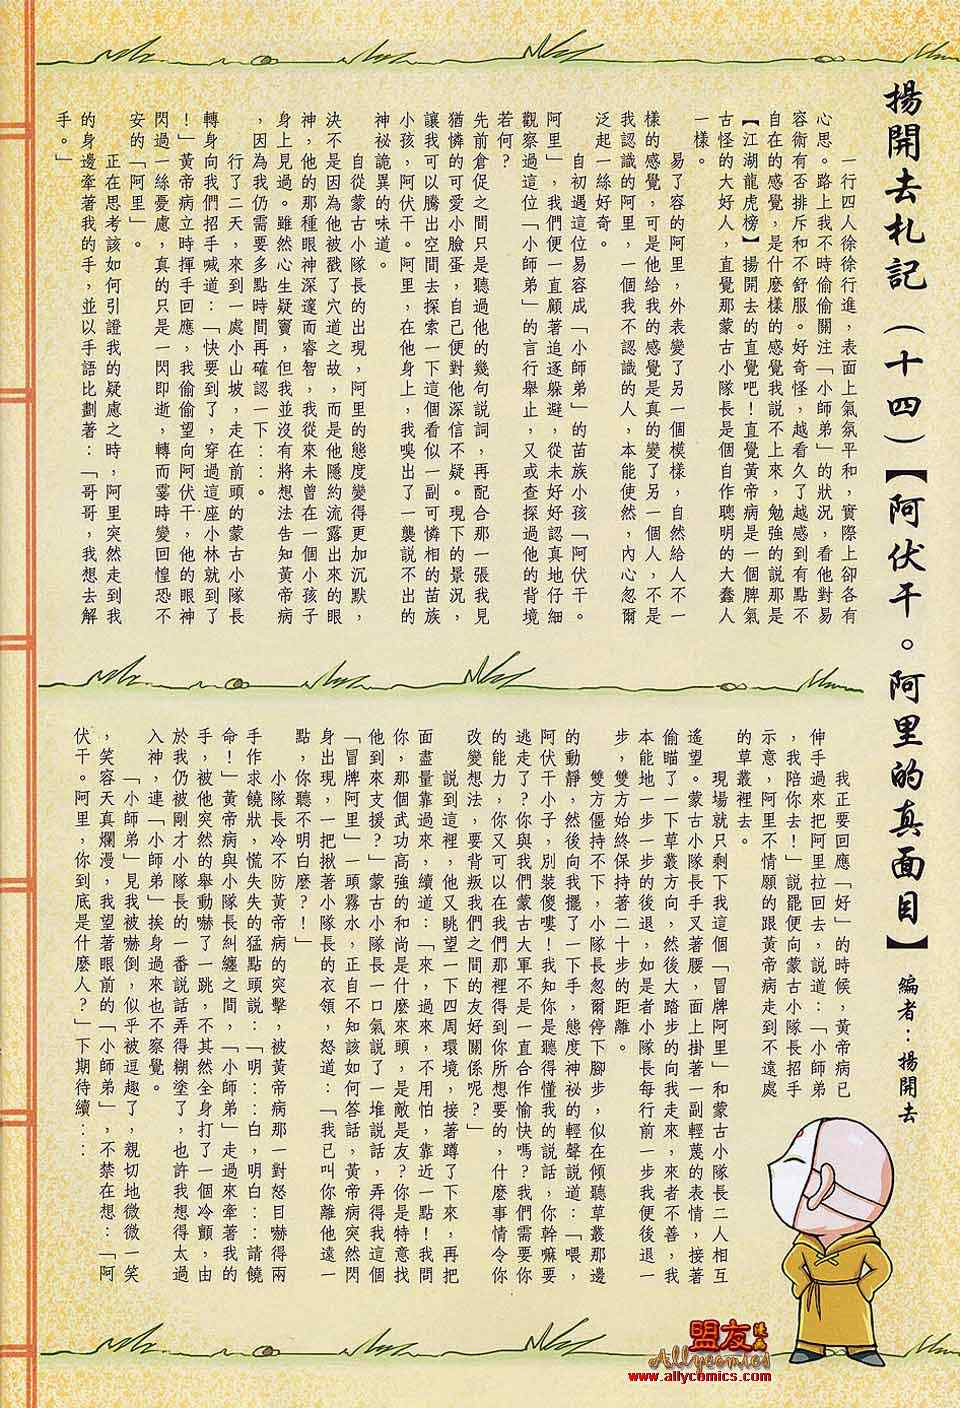 揚開去札記（十四）【阿伏干。阿里的真面目】
編者：揚開去
一行四人徐徐行進，表面上氣氛平和，實際上卻各有
心思。路上我不時偷偷關注「小師弟」的狀況，看他對易
容術有否排斥和不舒服。好奇怪，越看久了越感到有點不
自在的感覺，是什麼樣的感覺我說不上來，勉強的說那是
【江湖龍虎榜】揚開去的直覺吧！直覺黃帝病是一個脾氣
古怪的大好人，直覺那蒙古小隊長是個自作聰明的大蠢人
一樣。
易了容的阿里，外表變了另一個模樣，自然給人不一
樣的感覺，可是他給我的感覺是真的變了另一個人，不是
我認識的阿里，一個我不認識的人，本能使然，內心忽爾
泛起一絲好奇。
自初遇這位易容成「小師弟」的苗族小孩「阿伏干。
阿里」，我們便一直顧著追逐躲避，從未好好認真地仔細
觀察過這位「小師弟」的言行舉止，又或查探過他的背境
若何？
先前倉促之間只是聽過他的幾句説詞，再配合那一張我見
猶憐的可愛小臉蛋，自己便對他深信不疑。現下的景況，
讓我可以騰出空間去探索一下這個看似一副可憐相的苗族
小孩，阿伏干。阿里，在他身上，我嗅出了一襲說不出的
神祕詭異的味道。
自從蒙古小隊長的出現，阿里的態度變得更加沉默，
決不是因為他被戳了穴道之故，而是他隱約流露出來的眼
神，他的那種眼神深邃而睿智，我從來未曾在一個小孩子
身上見過。雖然心生疑竇，但我並沒有將想法告知黃帝病
，因為我仍需要多點時間再確認一下……。
行了二天，來到一處小山坡，走在前頭的蒙古小隊長
轉身向我們招手喊道：「快要到了，穿過這座小林就到了
！」黃帝病立時揮手回應，我偷偷望向阿伏干，他的眼神
閃過一絲憂慮，真的只是一閃即逝，轉而霎時變回惶恐不
安的「阿里」。
正在思考該如何引證我的疑慮之時，阿里突然走到我
的身邊牽著我的手，並以手語比劃著：「哥哥，我想去解
手。」
我正要回應「好」的時候，黃帝病已
伸手過來把阿里拉回去，說道：「小師弟
，我陪你去！」說罷便向蒙古小隊長招手
示意，阿里不情願的跟黃帝病走到不遠處
的草叢裡去。
現場就只剩下我這個「冒牌阿里」和蒙古小隊長二人相互
遙望。蒙古小隊長手叉著腰，面上掛著一副輕蔑的表情，接著
偷瞄了一下草叢方向，然後大踏步的向我走來，來者不善，我
本能地一步一步的後退，如是者小隊長每行前一步我便後退一
步，雙方始終保持著二十步的距離。
雙方僵持不下，小隊長忽爾停下腳步，似在傾聽草叢那邊
的動靜，然後向我擺了一下手，態度神祕的輕聲説道：「喂，
阿伏干小子，別裝傻嘍！我知你是聽得懂我的說話，你幹嘛要
逃走了？你與我們蒙古大軍不是一直合作愉快嗎？我們需要你
的能力，你又可以在我們那裡得到你所想要的，什麼事情令你
改變想法，要背叛我們之間的友好關係呢？」
說到這裡，他又眺望一下四周環境，接著蹲了下來，再把
面盡量靠過來，續道：「來，過來，不用怕，靠近一點！我問
你，那個武功高強的和尚是什麼來頭，是敵是友？你是特意找
他到來支援？」蒙古小隊長一口氣說了一堆說話，弄得我這個
「冒牌阿里」一頭霧水，正自不知該如何答話，黃帝病突然閃
身出現，一把揪著小隊長的衣領，怒道：「我已叫你離他遠一
點，你聽不明白麼？！」
小隊長冷不防黃帝病的突擊，被黃帝病那一對怒目嚇得兩
手作求饒狀，慌失失的猛點頭説：「明……白，明白……請饒
命！」黃帝病與小隊長糾纏之間，「小師弟」走過來牽著我的
手，被他突然的舉動嚇了一跳，不其然全身打了一個冷顫，由
於我仍被剛才小隊長的一番說話弄得糊塗了，也許我想得太過
入神，連「小師弟」挨身過來也不察覺。
「小師弟」見我被嚇倒，似乎被逗趣了，親切地微微一笑
，笑容天真爛漫，我望著眼前的「小師弟」，不禁在想：「阿
伏干。阿里，你到底是什麼人？」下期待續……
盟友
Allycomics
www.allycomics.com